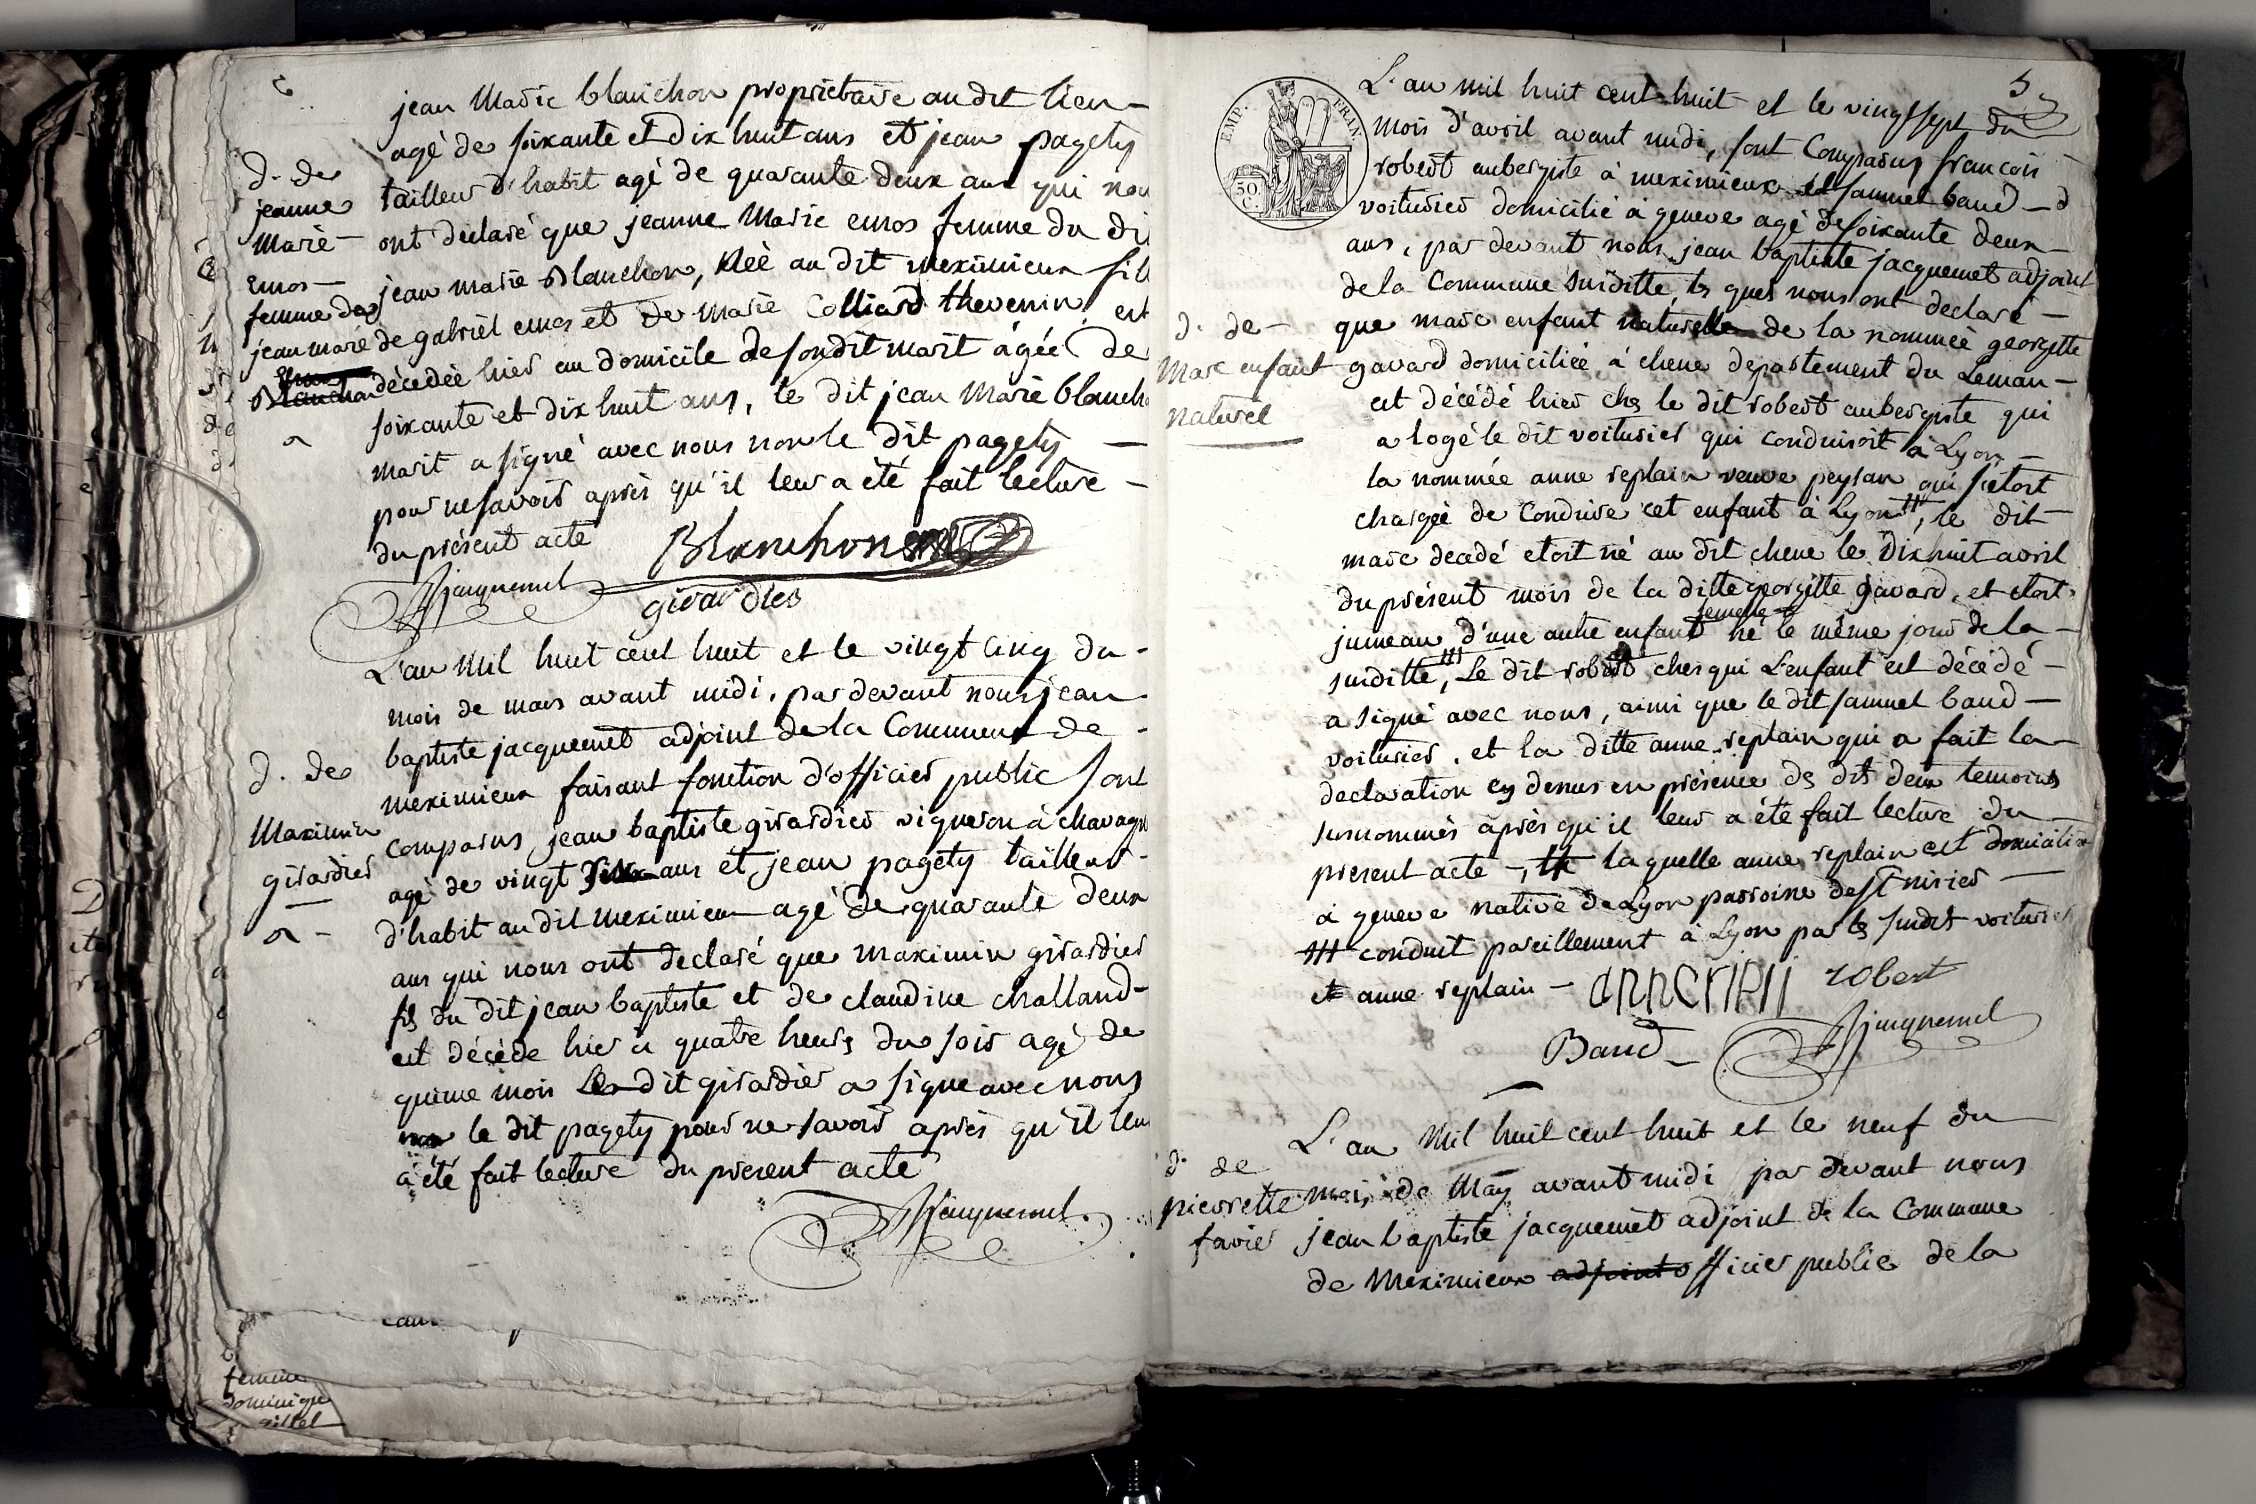 jean Marie blanchon proprietaire au dit lieu
agé de soixante et dix huit ans et jean pagety
tailleur d'habit agé de quarante deux ans qui nou
ont declaré que jeanne Marie emos femme du di
jean marie Blanchon, Née au dit meximieux fill
de gabriel emos et de marie Colliard thevenin, est
décédée hier au domicile de son dit mari âgée de
soixante et dix huit ans, le dit jean Marie blancho
marit a signé avec nous non le dit pagety
pour ne savoir après qu'il leur a été fait lecture
du présent acte
d. de
jeanne
Marie
emos
femme de
jean marie
Blanchon
Blanchon
girardier
JBjacquemet
L'an Mil huit cent huit et le vingt cinq du
mois de mars avant midi, par devant nous jean
baptiste jacquemet adjoint de la Commune de
meximieux faisant fonction d'officier public sont
comparus jean baptiste girardier vigneron à chavagn
agé de vingt ans et jean pagety tailleur
d'habit au dit meximieux agé de quarante deux
ans qui nous ont declaré que maximin girardier
fils du dit jean baptiste et de claudine challand
est décédé hier a quatre heures du soir agé de
quinze mois Le dit girardier a signé avec nous
non le dit pagety pour ne savoir après qu'il leur
a été fait lecture du present acte
d. de
Maximin
girardier
JBjacquemet
femme
dominique
L'an mil huit cent huit et le vingt sept du
mois d'avril avant midi, sont Comparus francois
robert aubergiste à meximieux et samuel baud
voiturier domicilié à geneve agé de soixante deux
ans, par devant nous jean baptiste jacquemet adjoint
de la Commune susditte, les quels nous ont declaré
que marc enfant naturelle de la nommée georgette
gavard domiciliée à chene departement du Leman
est décédé hier chez le dit robert aubergiste qui
a logé le dit voiturier qui conduisoit à Lyon
la nommée anne replain veuve peysan qui s'étoit
chargée de conduire cet enfant à Lyon #, le dit
marc decedé etoit né au dit chene le dix huit avril
du présent mois de la ditte georgette gavard, et etoit
jumeau d'une autre enfant femelle né le même jour de la
susditte, ### Le dit robert ches qui L'enfant est décédé
a signé avec nous, ainsi que le dit samuel baud
voiturier, et la ditte anne replain qui a fait la
declaration cy dessus en présence des dits deux temoins
susnommés après qu'il leur a été fait lecture du
present acte —, # la quelle anne replain est domiciliée
à geneve native de Lyon parroisse de St nisier
### conduit pareillement à Lyon par les susdit voiturier
et anne replain —
d. de
Marc enfant
naturel
EMP. FRAN.
50 C.
5
robert
Baud
JBjacquemet
L'an Mil huit cent huit et le neuf du
mois de May avant midi par devant nous
jean baptiste jacquemet adjoint de la Commune
de Meximieux adjoint officier public de la
d. de
pierrette
favier